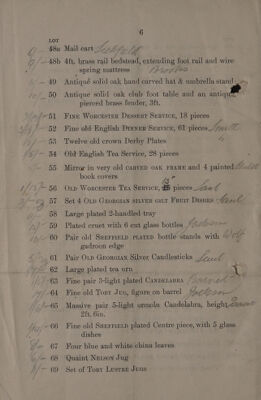 6
LOT
48a Mail cart
48b 4ft. brass rail bedstead, extending foot rail and wire
spring mattress
49 Antique solid oak hand carved hat & umbrella stand
50 Antique solid oak club foot table and an antique
pierced brass fender, 3ft.
51 FINE WORCESTER DESSERT SERVICE, 18 pieces
52 Fine old English DINNER SERVICE, 61 pieces
53 Twelve old crown Derby Plates
54 Old English Tea Service, 28 pieces
55 Mirror in very old CARVED OAK FRAME and 4 painted
book covers
56 OLD WORCESTER TEA SERVICE, pieces Saul
57 Set 4 OLD GEORGIAN SILVER GILT FRUIT DISHES Saul
58 Large plated 2-handled tray
59 Plated cruet with 6 cut glass bottles Jackson
60 Pair old SHEFFIELD PLATED bottle stands with
gadroon edge
61 Pair OLD GEORGIAN Silver Candlesticks Saul
62 Large plated tea urn
63 Fine pair 3-light plated CANDELABRA
64 Fine old TOBY JUG, figure on barrel Jackson
65 Massive pair 5-light ormolu Candelabra, height
2ft. 6in.
66 Fine old SHEFFIELD plated Centre piece, with 5 glass
dishes
67 Four blue and white china leaves
68 Quaint NELSON Jug
69 Set of TOBY LUSTRE JUGS